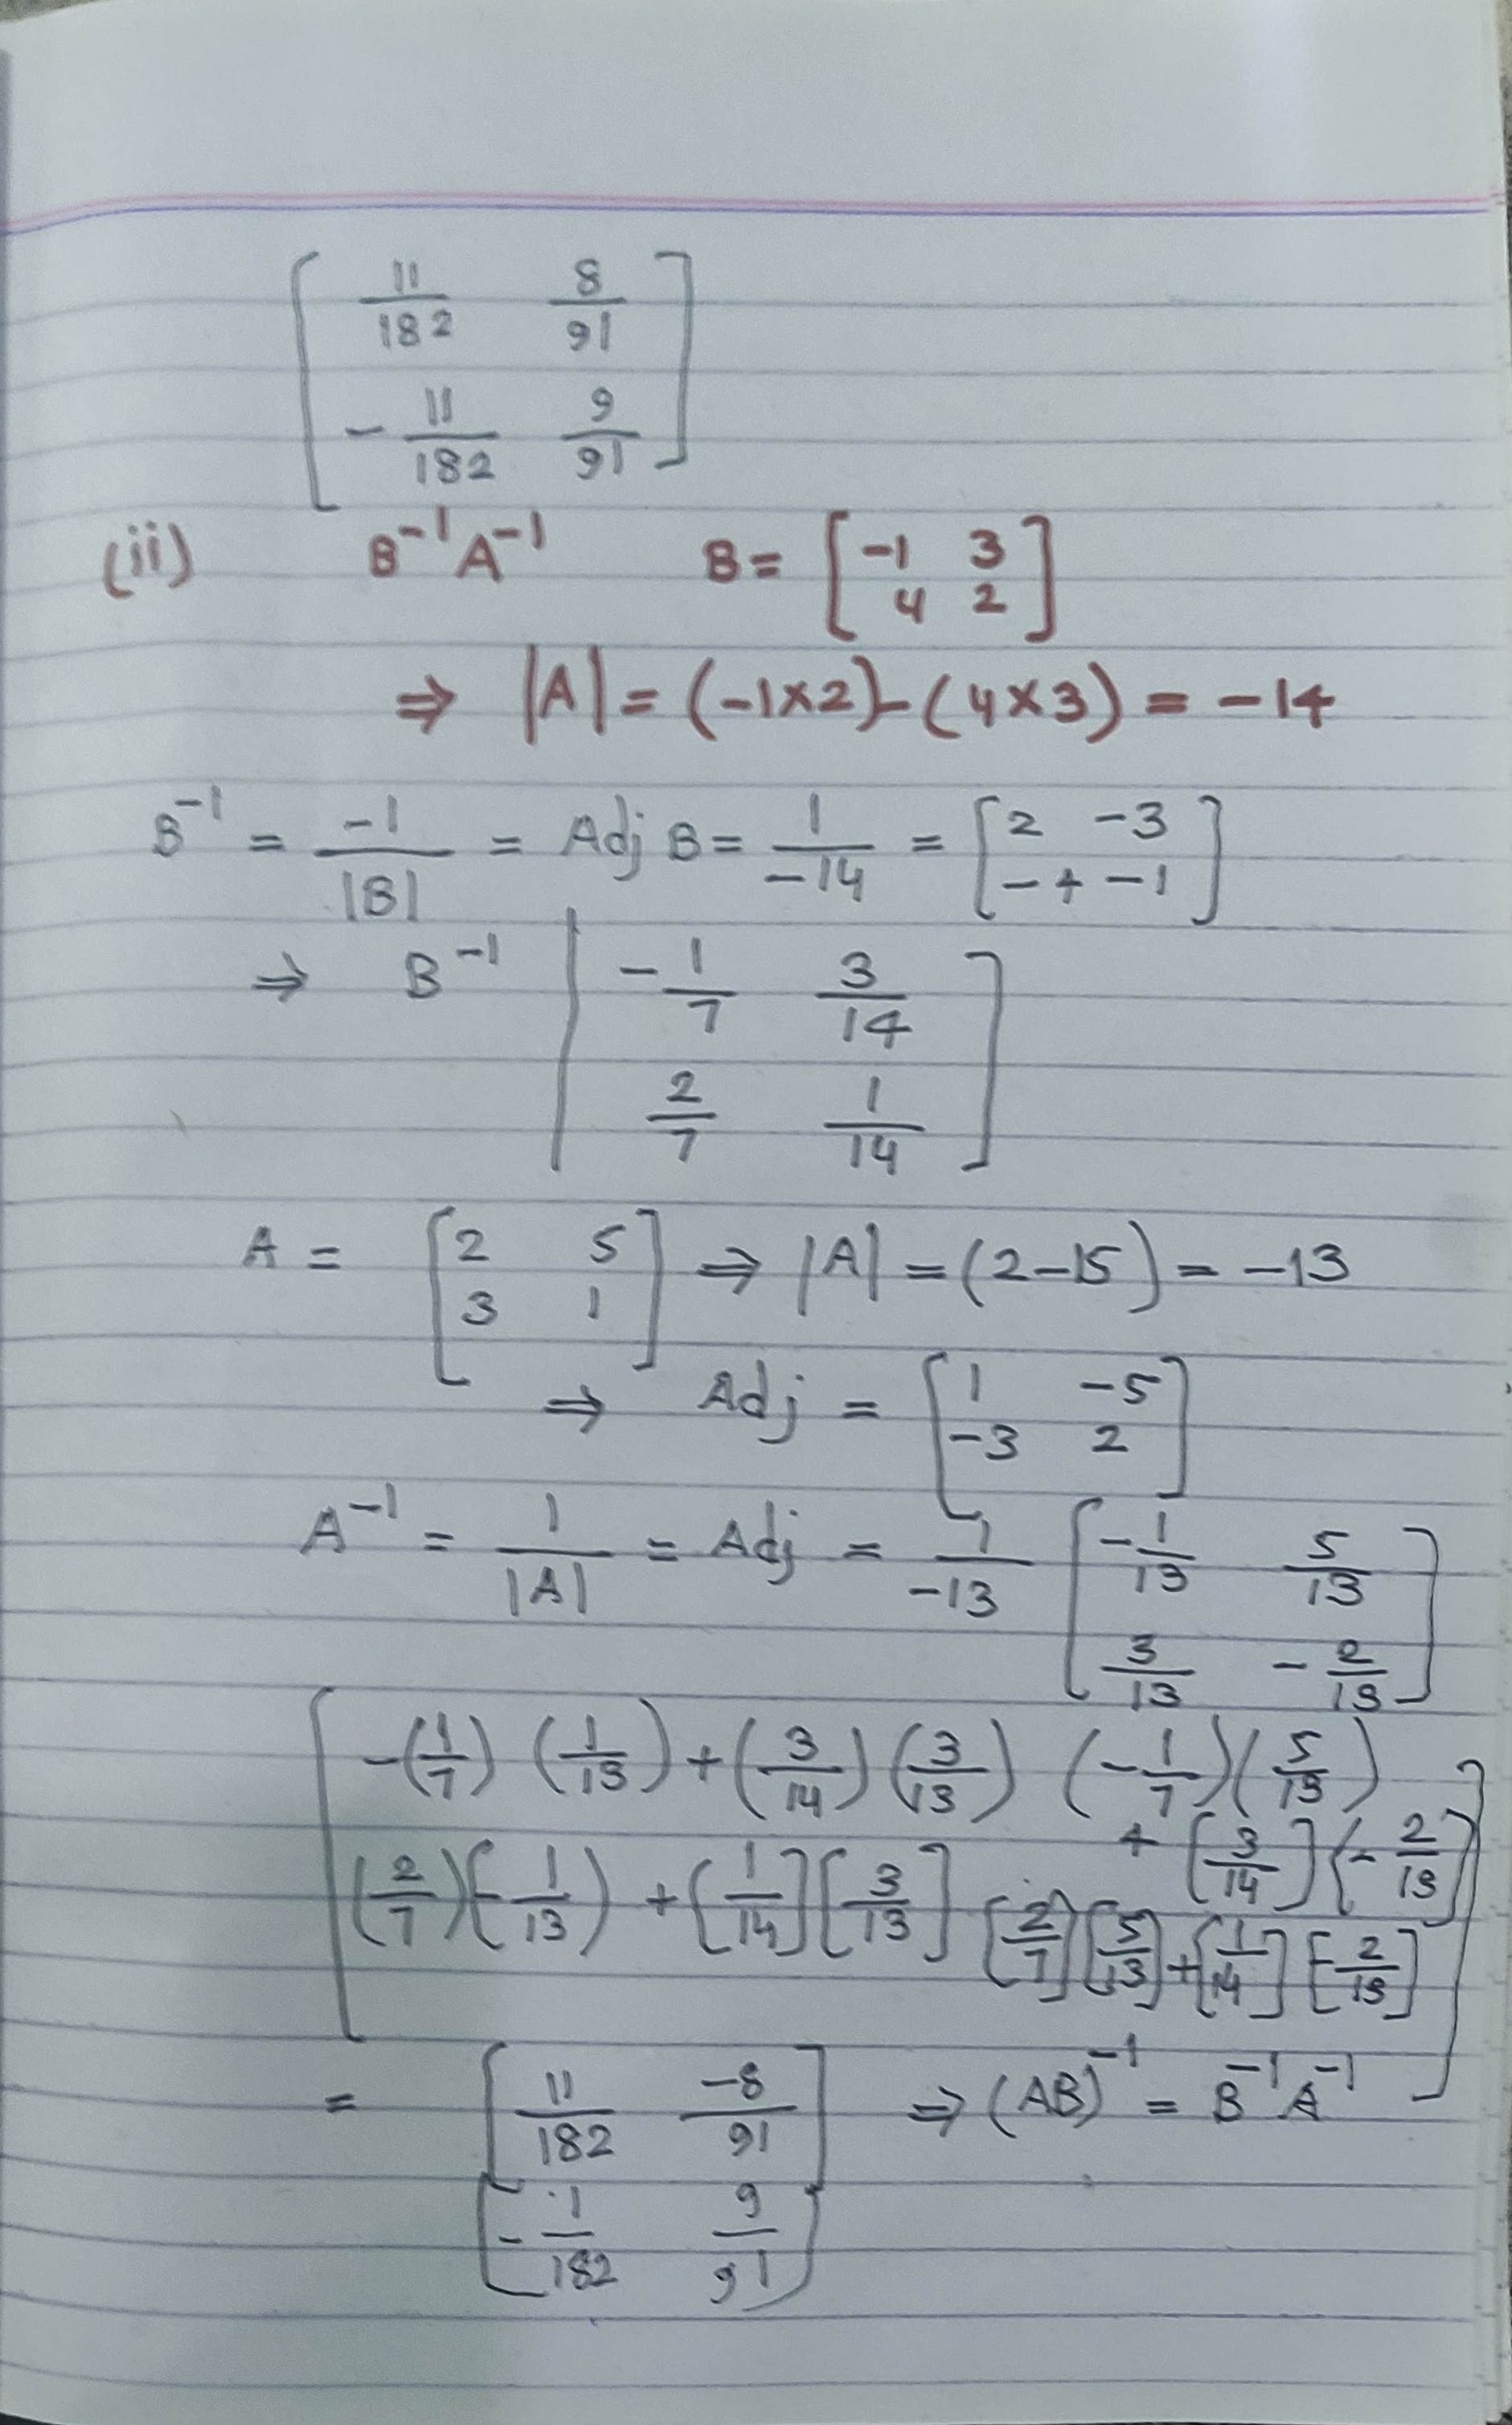 [ 11/182 8/91
- 11/182 9/91 ]
(ii) B⁻¹A⁻¹ B = [ -1 3
4 2 ]
⇒ |A| = (-1×2)-(4×3) = -14
B⁻¹ = -1/|B| = Adj B = 1/-14 = [ 2 -3
-4 -1 ]
⇒ B⁻¹ | -1/7 3/14
2/7 1/14 ]
A = [ 2 5
3 1 ] ⇒ |A| = (2-15) = -13
⇒ Adj = [ 1 -5
-3 2 ]
A⁻¹ = 1/|A| = Adj = 1/-13 [ -1/13 5/13
3/13 -2/13 ]
[ -(1/7) (1/13) + (3/14) (3/13) (-1/7)(5/13)
+ [3/14] (-2/13)
(2/7)(-1/13) + [1/14][3/13] [2/7][5/13]+[1/14][-2/13] ]
= [ 11/182 -8/91 ] ⇒ (AB)⁻¹ = B⁻¹A⁻¹
[ -1/182 9/91 ]